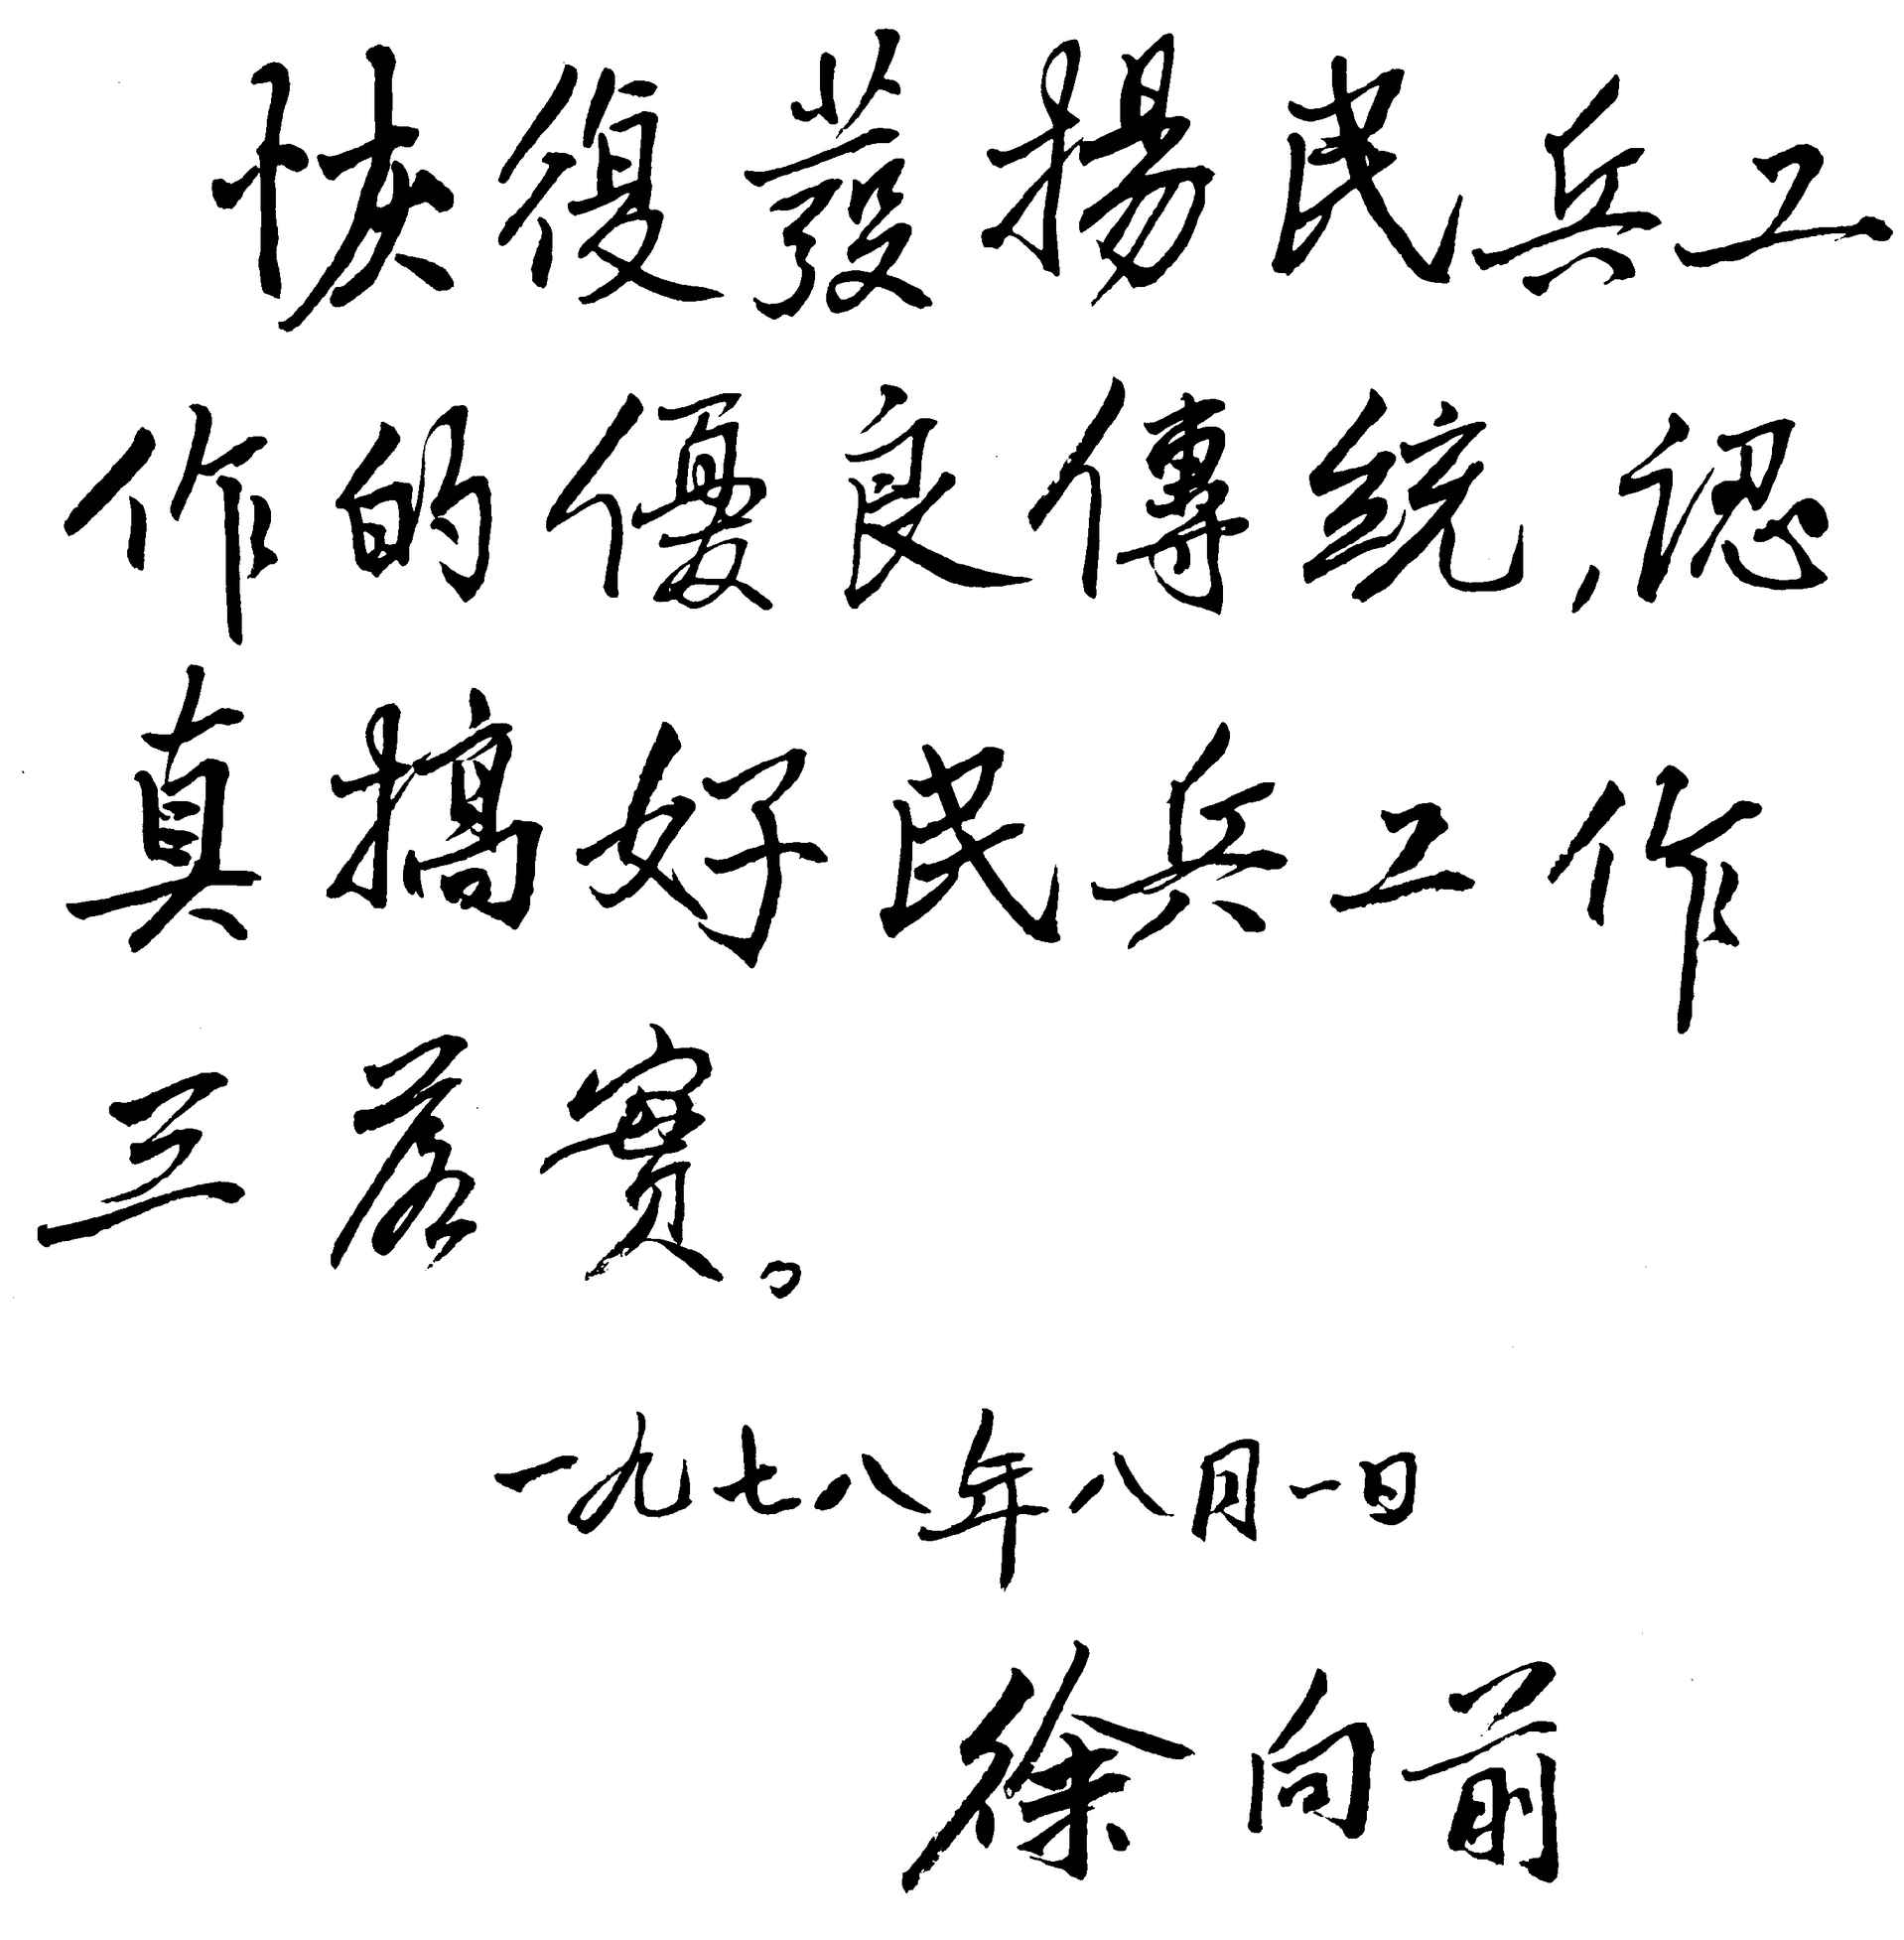 恢復發揚民兵工
作的優良傳統,認
真搞好民兵工作
三落實。
一九七八年八月一日
徐向前